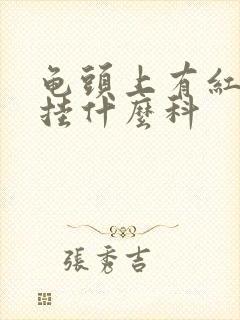 龟頭上有紅
挂什麼科
張秀吉